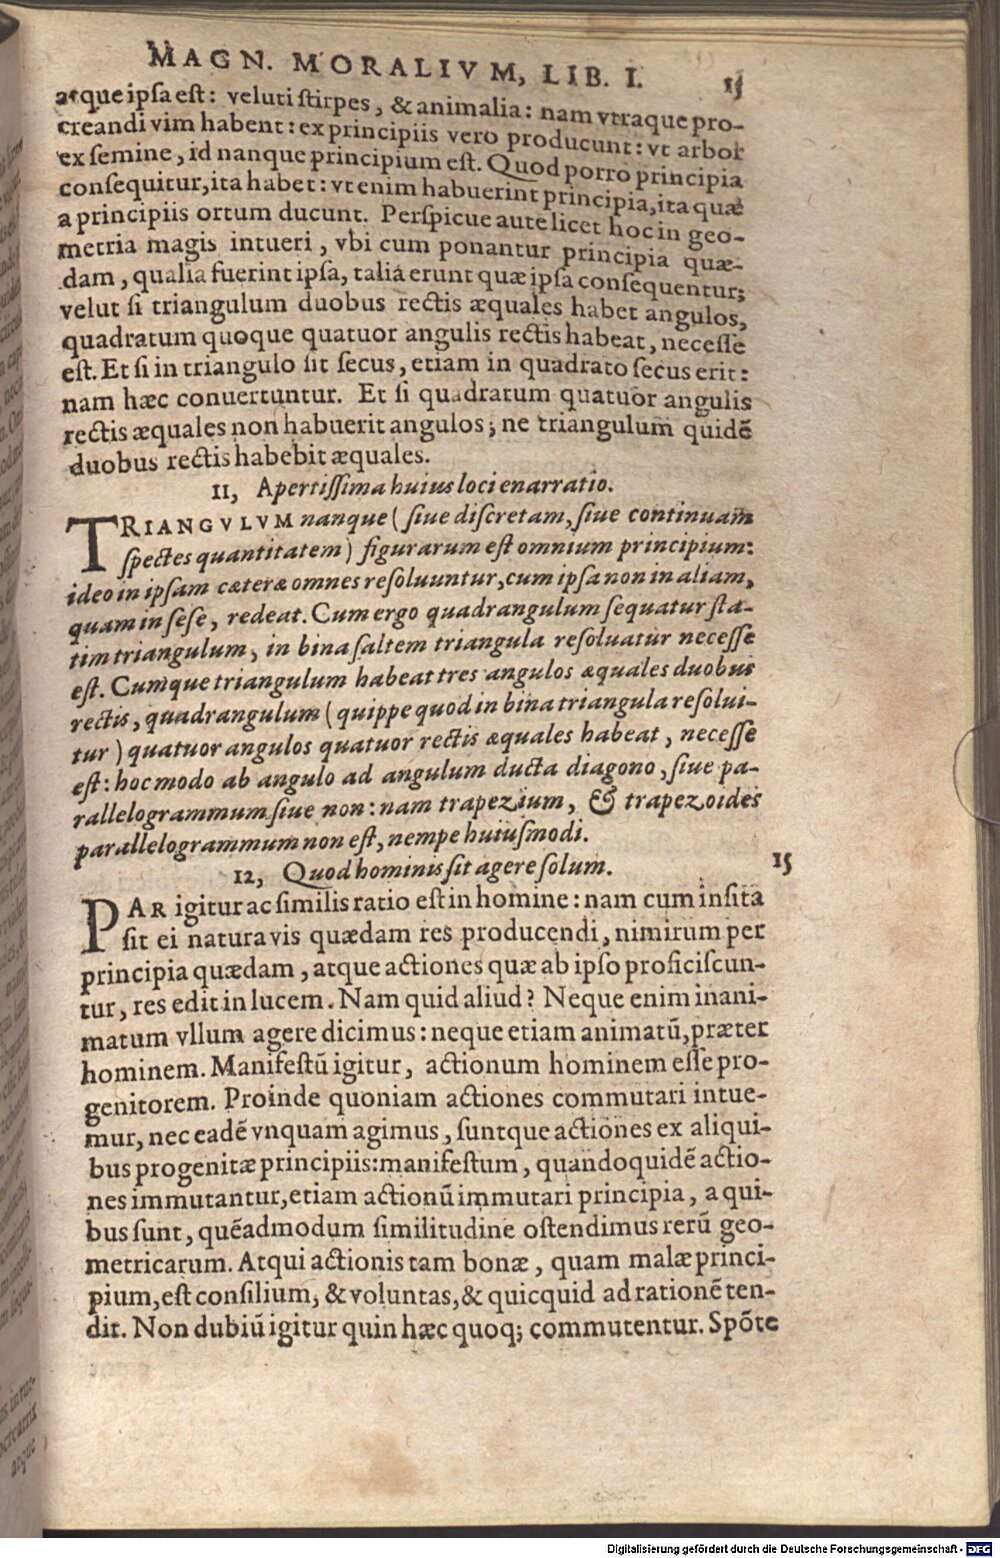 MAGN. MORALIVM, LIB. I. 15
atque ipsa est: veluti stirpes, & animalia: nam vtraque pro-
creandi vim habent: ex principiis vero producunt: vt arbor
ex semine, id nanque principium est. Quod porro principia
consequitur, ita habet: vt enim habuerint principia, ita quæ
a principiis ortum ducunt. Perspicue autē licet hoc in geo-
metria magis intueri, vbi cum ponantur principia quæ-
dam, qualia fuerint ipsa, talia erunt quæ ipsa consequentur;
velut si triangulum duobus rectis æquales habet angulos,
quadratum quoque quatuor angulis rectis habeat, necesse
est. Et si in triangulo sit secus, etiam in quadrato secus erit:
nam hæc conuertuntur. Et si quadratum quatuor angulis
rectis æquales non habuerit angulos; ne triangulum quidē
duobus rectis habebit æquales.
11, Apertissima huius loci enarratio.
TRIANGVLVM nanque (siue discretam, siue continuam
spectes quantitatem) figurarum est omnium principium:
ideo in ipsam cæteræ omnes resoluuntur, cum ipsa non in aliam,
quam in sese, redeat. Cum ergo quadrangulum sequatur sta-
tim triangulum, in bina saltem triangula resoluatur necesse
est. Cumque triangulum habeat tres angulos æquales duobus
rectis, quadrangulum (quippe quod in bina triangula resolui-
tur) quatuor angulos quatuor rectis æquales habeat, necesse
est: hoc modo ab angulo ad angulum ducta diagono, siue pa-
rallelogrammum siue non: nam trapezium, & trapezoides
parallelogrammum non est, nempe huiusmodi.
12, Quod hominis sit agere solum. 15
PAR igitur ac similis ratio est in homine: nam cum insita
sit ei natura vis quædam res producendi, nimirum per
principia quædam, atque actiones quæ ab ipso proficiscun-
tur, res edit in lucem. Nam quid aliud? Neque enim inani-
matum vllum agere dicimus: neque etiam animatū, præter
hominem. Manifestū igitur, actionum hominem esse pro-
genitorem. Proinde quoniam actiones commutari intue-
mur, nec eadē vnquam agimus, suntque actiones ex aliqui-
bus progenitæ principiis: manifestum, quandoquidē actio-
nes immutantur, etiam actionū immutari principia, a qui-
bus sunt, quēadmodum similitudine ostendimus rerū geo-
metricarum. Atqui actionis tam bonæ, quam malæ princi-
pium, est consilium, & voluntas, & quicquid ad rationē ten-
dit. Non dubiū igitur quin hæc quoq; commutentur. Spōte
Digitalisierung gefördert durch die Deutsche Forschungsgemeinschaft - DFG